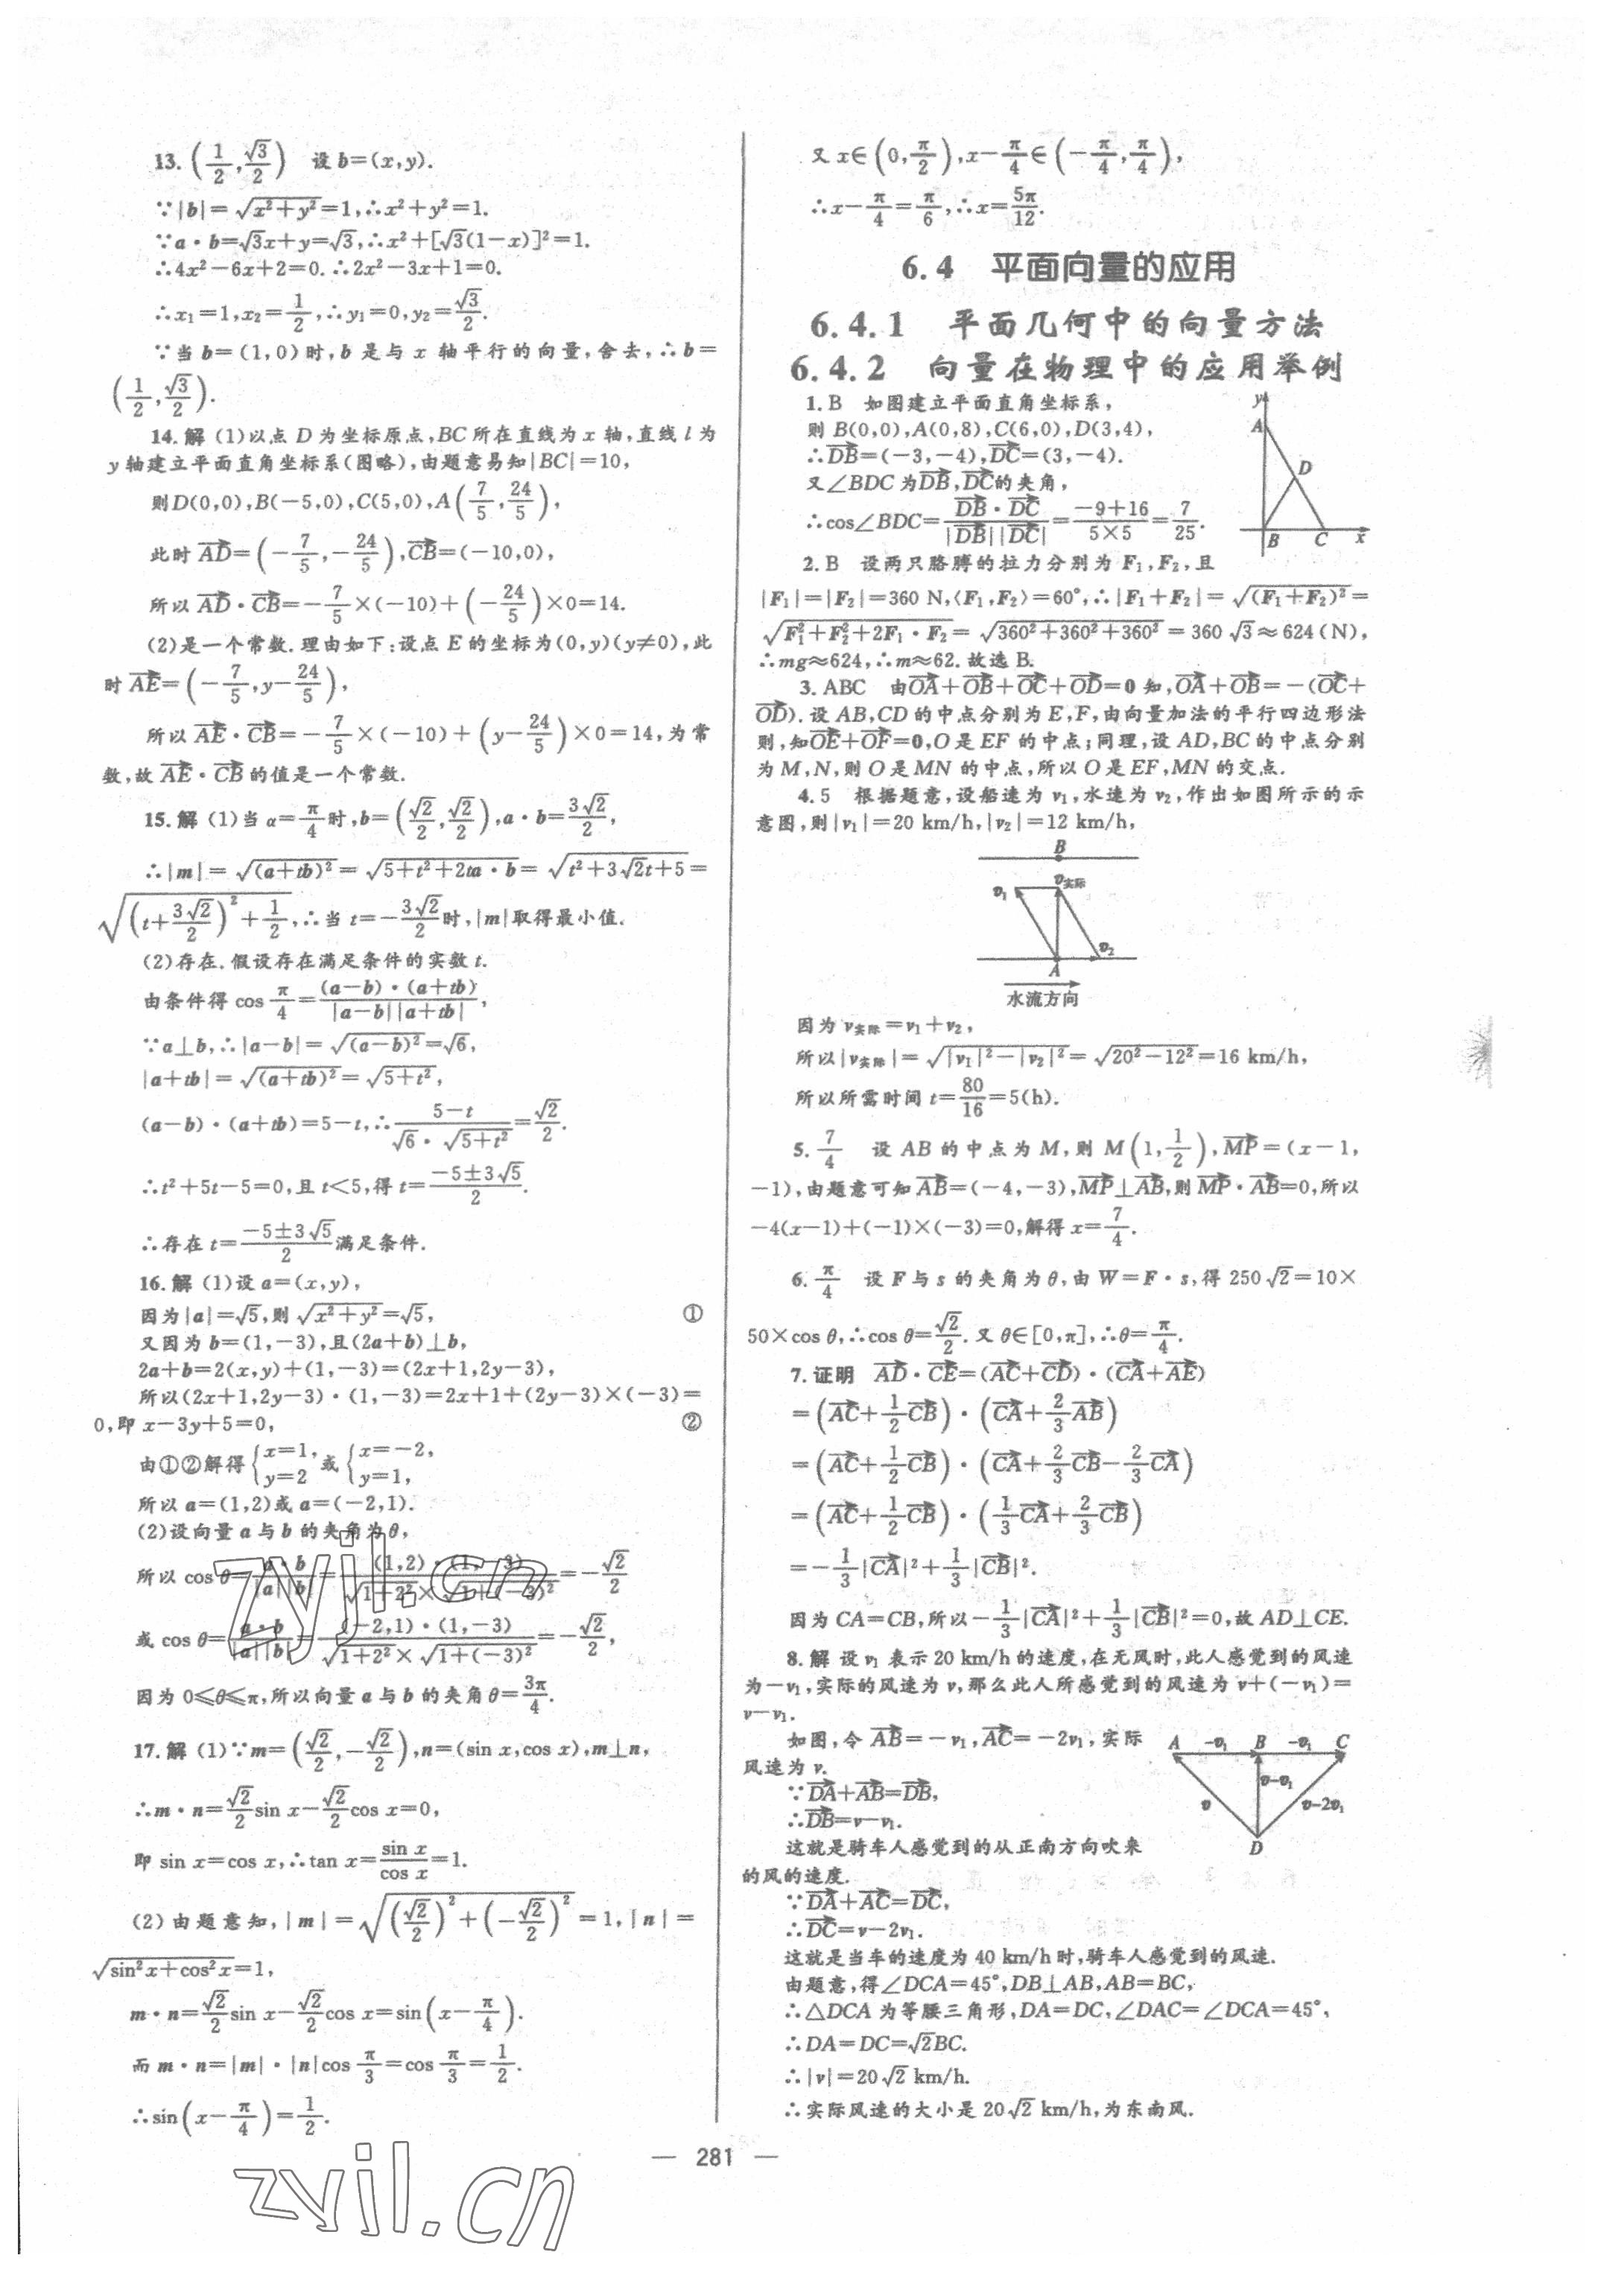 13. (1/2, √3/2)　设 b=(x,y).
∵|b|=√(x²+y²)=1,∴x²+y²=1.
∵a·b=√3x+y=√3,∴x²+[√3(1-x)]²=1.
∴4x²-6x+2=0.∴2x²-3x+1=0.
∴x₁=1,x₂=1/2,∴y₁=0,y₂=√3/2.
∵当 b=(1,0)时,b 是与 x 轴平行的向量,舍去,∴b=
(1/2, √3/2).
14.解 (1)以点 D 为坐标原点,BC 所在直线为 x 轴,直线 l 为
y 轴建立平面直角坐标系(图略),由题意易知|BC|=10,
则D(0,0),B(-5,0),C(5,0),A(7/5, 24/5),
此时 AD→=(-7/5, -24/5),CB→=(-10,0),
所以 AD→·CB→=-7/5×(-10)+(-24/5)×0=14.
(2)是一个常数.理由如下:设点 E 的坐标为(0,y)(y≠0),此
时 AE→=(-7/5, y-24/5),
所以 AE→·CB→=-7/5×(-10)+(y-24/5)×0=14,为常
数,故 AE→·CB→ 的值是一个常数.
15.解 (1)当 α=π/4时,b=(√2/2, √2/2),a·b=3√2/2,
∴|m|=√((a+tb)²)=√(5+t²+2ta·b)=√(t²+3√2t+5)=
√((t+3√2/2)²+1/2),∴当 t=-3√2/2时,|m|取得最小值.
(2)存在.假设存在满足条件的实数 t.
由条件得 cos π/4=(a-b)·(a+tb)/(|a-b||a+tb|),
∵a⊥b,∴|a-b|=√((a-b)²)=√6,
|a+tb|=√((a+tb)²)=√(5+t²),
(a-b)·(a+tb)=5-t,∴(5-t)/(√6·√(5+t²))=√2/2.
∴t²+5t-5=0,且 t<5,得 t=(-5±3√5)/2.
∴存在 t=(-5±3√5)/2满足条件.
16.解 (1)设 a=(x,y),
因为|a|=√5,则 √(x²+y²)=√5, ①
又因为 b=(1,-3),且(2a+b)⊥b,
2a+b=2(x,y)+(1,-3)=(2x+1,2y-3),
所以(2x+1,2y-3)·(1,-3)=2x+1+(2y-3)×(-3)=
0,即 x-3y+5=0, ②
由①②解得{x=1, y=2 或{x=-2, y=1,
所以 a=(1,2)或 a=(-2,1).
(2)设向量 a 与 b 的夹角为 θ,
所以 cos θ=a·b/(|a||b|)=(1,2)·(1,-3)/(√(1+2²)×√(1+(-3)²))=-√2/2
或 cos θ=a·b/(|a||b|)=(-2,1)·(1,-3)/(√(1+2²)×√(1+(-3)²))=-√2/2,
因为 0≤θ≤π,所以向量 a 与 b 的夹角 θ=3π/4.
17.解 (1)∵m=(√2/2, -√2/2),n=(sin x,cos x),m⊥n,
∴m·n=√2/2 sin x-√2/2 cos x=0,
即 sin x=cos x,∴tan x=sin x/cos x=1.
(2)由题意知,|m|=√((√2/2)²+(-√2/2)²)=1,|n|=
√(sin²x+cos²x)=1,
m·n=√2/2 sin x-√2/2 cos x=sin(x-π/4).
而 m·n=|m|·|n|cos π/3=cos π/3=1/2.
∴sin(x-π/4)=1/2.
又 x∈(0, π/2),x-π/4∈(-π/4, π/4),
∴x-π/4=π/6,∴x=5π/12.
6.4　平面向量的应用
6.4.1　平面几何中的向量方法
6.4.2　向量在物理中的应用举例
1.B　如图建立平面直角坐标系,
则 B(0,0),A(0,8),C(6,0),D(3,4),
∴DB→=(-3,-4),DC→=(3,-4).
又∠BDC 为DB→,DC→的夹角,
∴cos∠BDC=DB→·DC→/(|DB→||DC→|)=(-9+16)/(5×5)=7/25.
y
A
D
B　C　x
2.B　设两只胳膊的拉力分别为 F₁,F₂,且
|F₁|=|F₂|=360 N,⟨F₁,F₂⟩=60°,∴|F₁+F₂|=√((F₁+F₂)²)=
√(F₁²+F₂²+2F₁·F₂)=√(360²+360²+360²)=360√3≈624(N),
∴mg≈624,∴m≈62.故选 B.
3.ABC　由OA→+OB→+OC→+OD→=0 知,OA→+OB→=-(OC→+
OD→).设 AB,CD 的中点分别为 E,F,由向量加法的平行四边形法
则,知OE→+OF→=0,O 是 EF 的中点;同理,设 AD,BC 的中点分别
为 M,N,则 O 是 MN 的中点,所以 O 是 EF,MN 的交点.
4.5　根据题意,设船速为 v₁,水速为 v₂,作出如图所示的示
意图,则|v₁|=20 km/h,|v₂|=12 km/h,
B
v₁　v实际
v₂
A
水流方向
因为 v实际=v₁+v₂,
所以|v实际|=√(|v₁|²-|v₂|²)=√(20²-12²)=16 km/h,
所以所需时间 t=80/16=5(h).
5. 7/4　设 AB 的中点为 M,则 M(1, 1/2),MP→=(x-1,
-1),由题意可知AB→=(-4,-3),MP→⊥AB→,则MP→·AB→=0,所以
-4(x-1)+(-1)×(-3)=0,解得 x=7/4.
6. π/4　设 F 与 s 的夹角为 θ,由 W=F·s,得 250√2=10×
50×cos θ,∴cos θ=√2/2.又 θ∈[0,π],∴θ=π/4.
7.证明　AD→·CE→=(AC→+CD→)·(CA→+AE→)
=(AC→+1/2CB→)·(CA→+2/3AB→)
=(AC→+1/2CB→)·(CA→+2/3CB→-2/3CA→)
=(AC→+1/2CB→)·(1/3CA→+2/3CB→)
=-1/3|CA→|²+1/3|CB→|².
因为 CA=CB,所以-1/3|CA→|²+1/3|CB→|²=0,故 AD⊥CE.
8.解 设 v₁ 表示 20 km/h 的速度,在无风时,此人感觉到的风速
为-v₁,实际的风速为 v,那么此人所感觉到的风速为 v+(-v₁)=
v-v₁.
如图,令 AB→=-v₁,AC→=-2v₁,实际
风速为 v.
∵DA→+AB→=DB→,
∴DB→=v-v₁.
这就是骑车人感觉到的从正南方向吹来
的风的速度.
A　-v₁　B　-v₁　C
v-v₁
v　v-2v₁
D
∵DA→+AC→=DC→,
∴DC→=v-2v₁.
这就是当车的速度为 40 km/h 时,骑车人感觉到的风速.
由题意,得∠DCA=45°,DB⊥AB,AB=BC,
∴△DCA 为等腰三角形,DA=DC,∠DAC=∠DCA=45°,
∴DA=DC=√2BC.
∴|v|=20√2 km/h.
∴实际风速的大小是 20√2 km/h,为东南风.
— 281 —
zyjl.cn
zyjl.cn